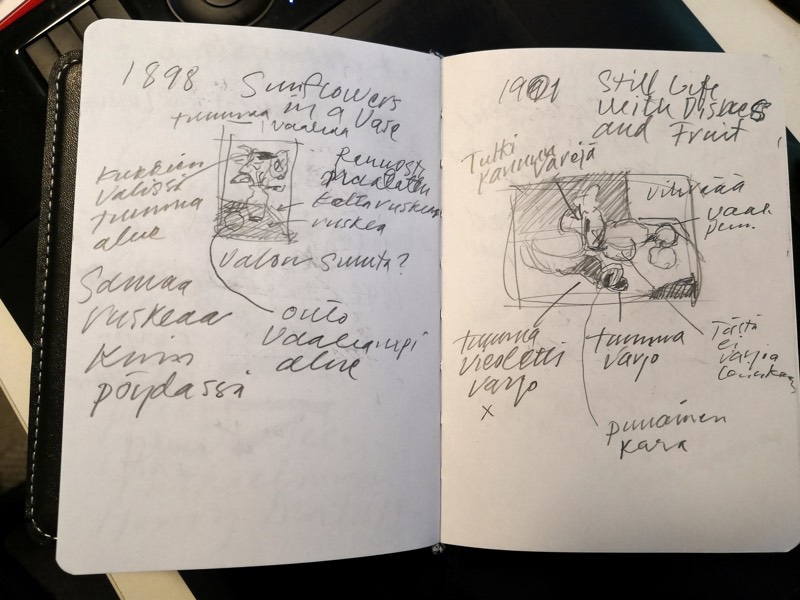 1898
Sunflowers
in a Vase
tummaa
vaaleaa
Kukkien
välissä
tumma
alue
Rennosti
maalattu
Keltaruskeaa
ruskea
Valon suunta?
Samaa
ruskeaa
kuin
pöydässä
outo
vaaleampi
alue
1901
Still Life
with Dishes
and Fruit
Tutki
kannun
värejä
vihreää
vaal.
pun.
tumma
violetti
varjo
x
tumma
varjo
Tästä
ei
varjoa
punainen
kara